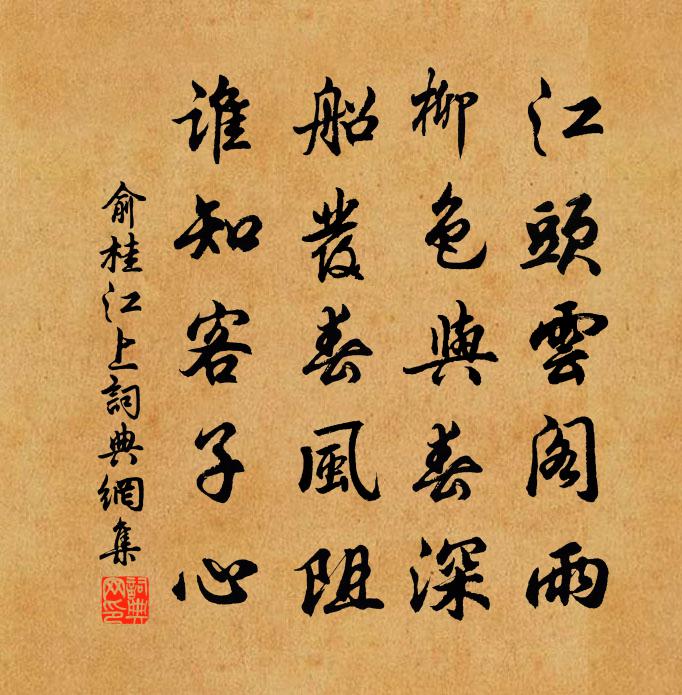 江頭雲閣雨
柳色與春深
船發春風阻
誰知客子心
俞桂江上詞典網集
詞典网印